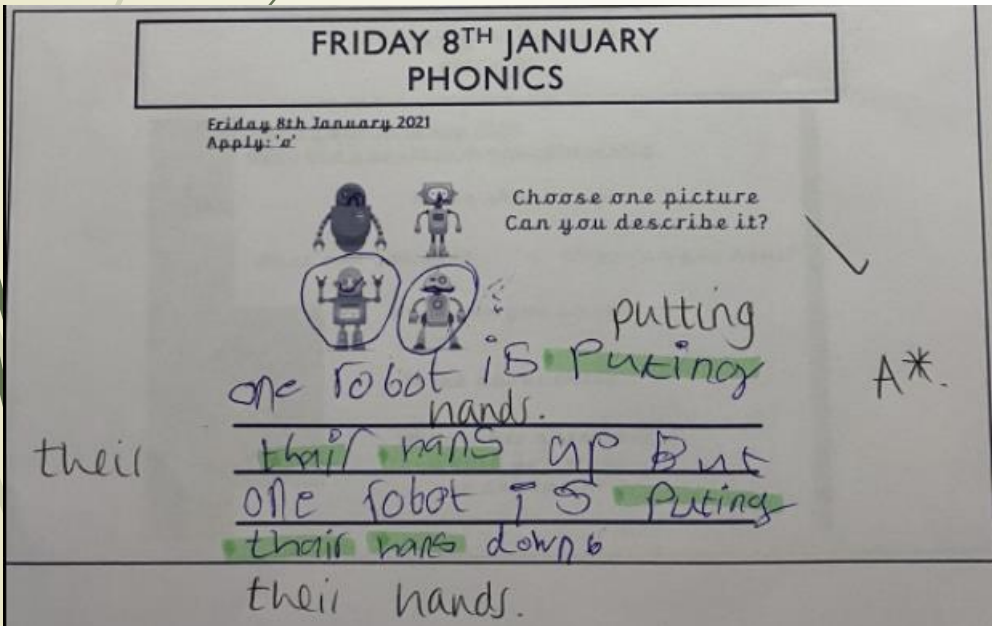 FRIDAY 8TH JANUARY
PHONICS
Friday 8th January 2021
Apply: 'a'
Choose one picture
Can you describe it?
putting
one robot is Puting
hands.
A*.
their
thair hans up But
one robot is Puting
thair hans down
their hands.